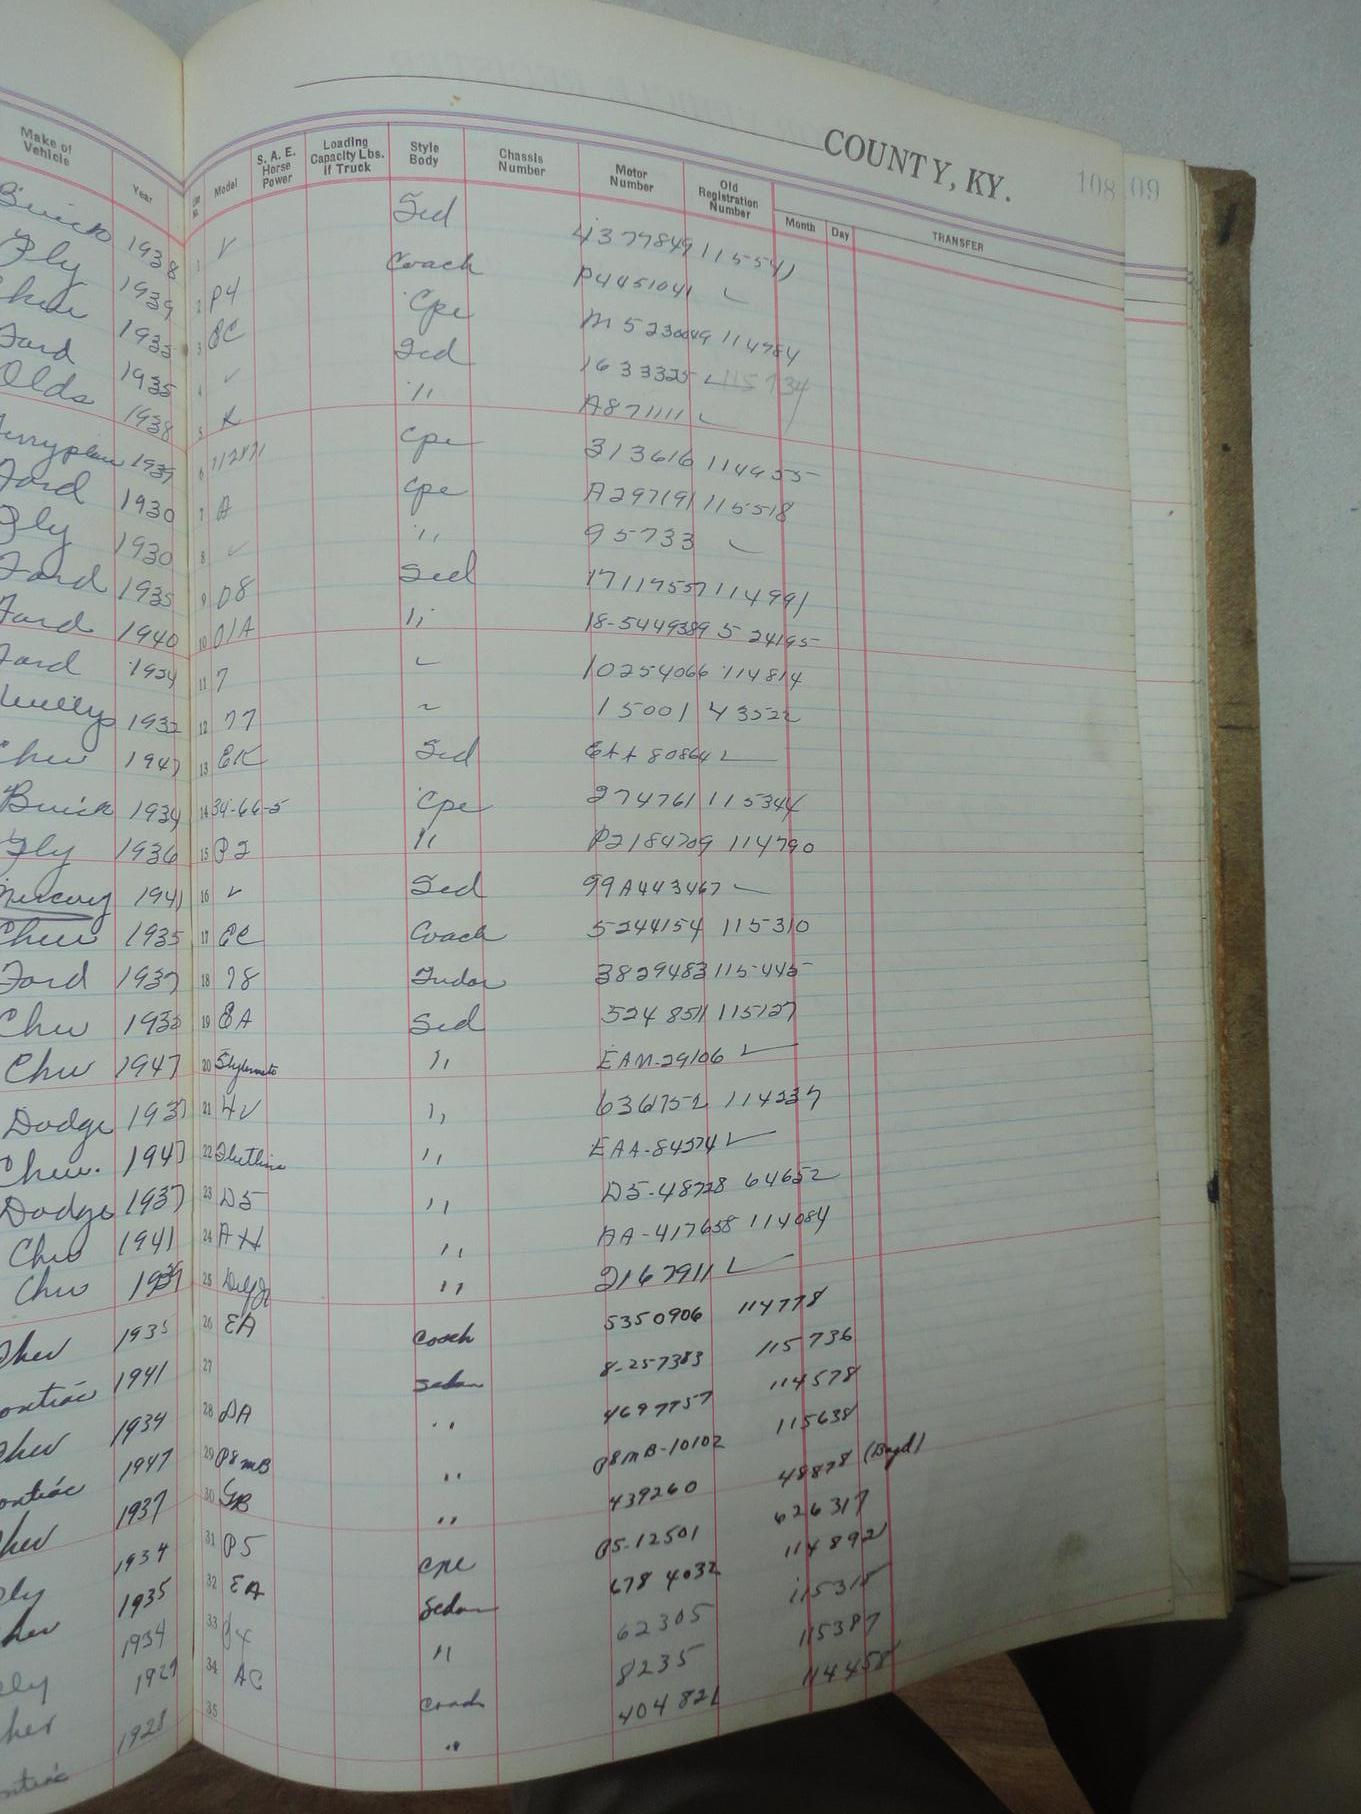 COUNTY, KY.
108 109
Make of Vehicle Year Line No. Model S. A. E. Horse Power Loading Capacity Lbs. If Truck Style Body Chassis Number Motor Number Old Registration Number Month Day TRANSFER
Buick 1938 1 ✓ Sed 4377849 115541
Ply 1939 2 P4 Coach P4451041 ✓
Chev 1935 3 EC Cpe M 5230049 114784
Ford 1935 4 ✓ Sed 1633325 ✓ 115734
Olds 1938 5 K " A871111 ✓
1937 6 Cpe 313616 114955
Ford 1930 7 A Cpe A297191 115518
Ply 1930 8 ✓ " 95733 ✓
Ford 1935 9 D8 Sed 17117557 114991
Ford 1940 10 01A " 18-5449389 5 24195
Ford 1934 11 7 ✓ 10254066 114814
Willys 1932 12 77 ~ 15001 43522
Chev 1947 13 EK Sed 80864 ✓
Buick 1934 14 34-66-5 Cpe 274761 115344
Ply 1936 15 P2 " P2184709 114790
Mercury 1941 16 ✓ Sed 99A443467 ✓
Chev 1935 17 EC Coach 5244154 115310
Ford 1937 18 78 Tudor 3829483 115445
Chev 1935 19 EA Sed 524 8511 115127
Chev 1947 20 " EAM-29106 ✓
Dodge 1937 21 " 636752 114237
Chev. 1947 22 Fleetline " EAA-84574 ✓
Dodge 1937 23 D5 " D5-48728 64652
Chev 1941 24 AH " AA-417658 114084
Chev 1939 25 " 2167911 ✓
Chev 1935 26 EA Coach 5350906 114778
Pontiac 1941 27 Sedan 8-257383 115736
Chev 1934 28 DA " 4697757 114578
Pontiac 1947 29 P8MB " P8MB-10102 115638
Chev 1937 30 GB " 439260 48878 (Boyd)
Ply 1934 31 P5 Cpe P5-12501 626317
Chev 1935 32 EA Sedan 678 4032 114892
1934 33 " 62305 115315
Chev 1929 34 AC Coach 8235 115387
Pontiac 1928 35 " 404821 114458